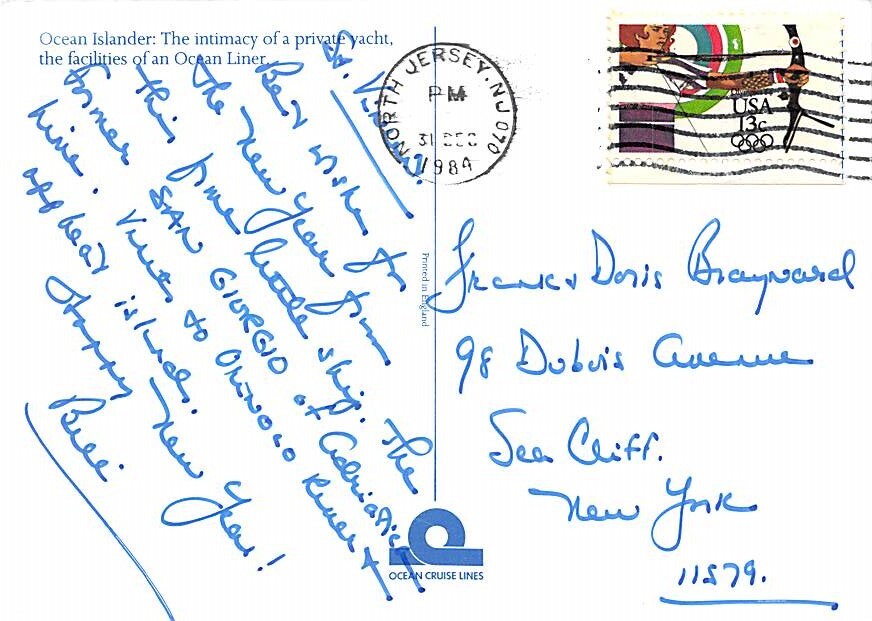 Ocean Islander: The intimacy of a private yacht,
the facilities of an Ocean Liner.
St.
Best wishes for
the New Year from
this fine little ship. The
former SAN GIORGIO of Adriatica
Line. Visits to Orinoco River +
off beat islands.
Happy New Year!
Bill.
Printed in England
OCEAN CRUISE LINES
NORTH JERSEY, NJ 070
PM
31 DEC
1984
USA
13c
Frank & Doris Braynard
98 Dubois Avenue
Sea Cliff.
New York
11579.